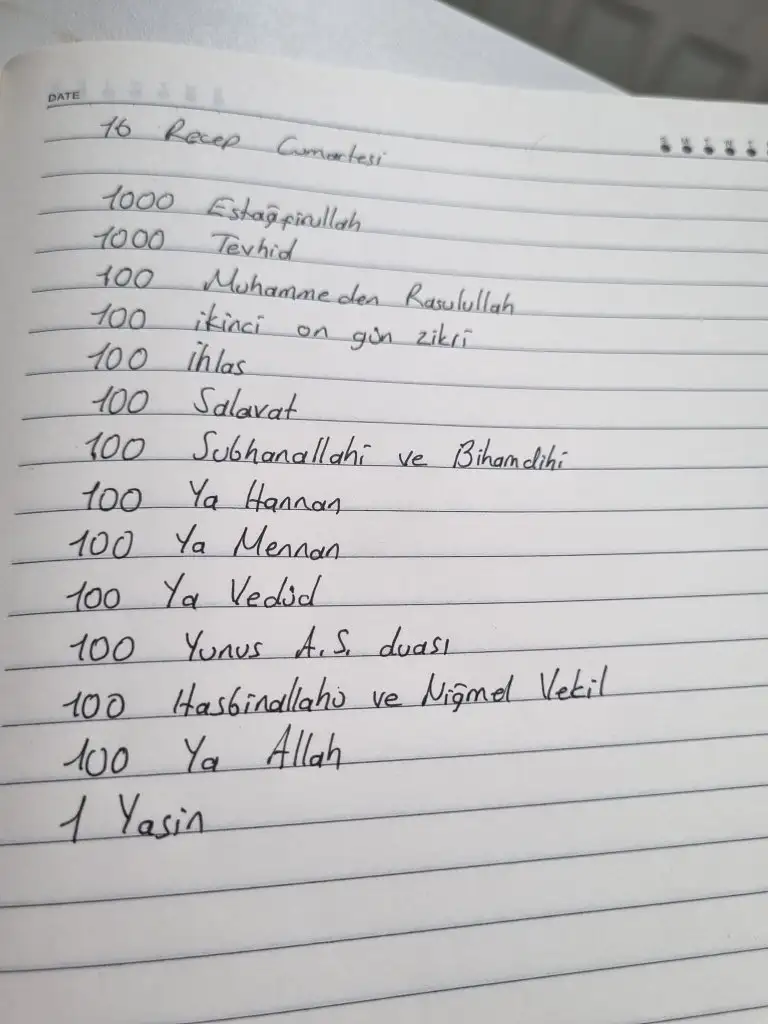 DATE
16 Recep Cumartesi
1000 Estağfirullah
1000 Tevhid
100 Muhammeden Rasulullah
100 ikinci on gün zikri
100 ihlas
100 Salavat
100 Subhanallahi ve Bihamdihi
100 Ya Hannan
100 Ya Mennan
100 Ya Vedüd
100 Yunus A.S. duası
100 Hasbinallahü ve Niğmel Vekil
100 Ya Allah
1 Yasin